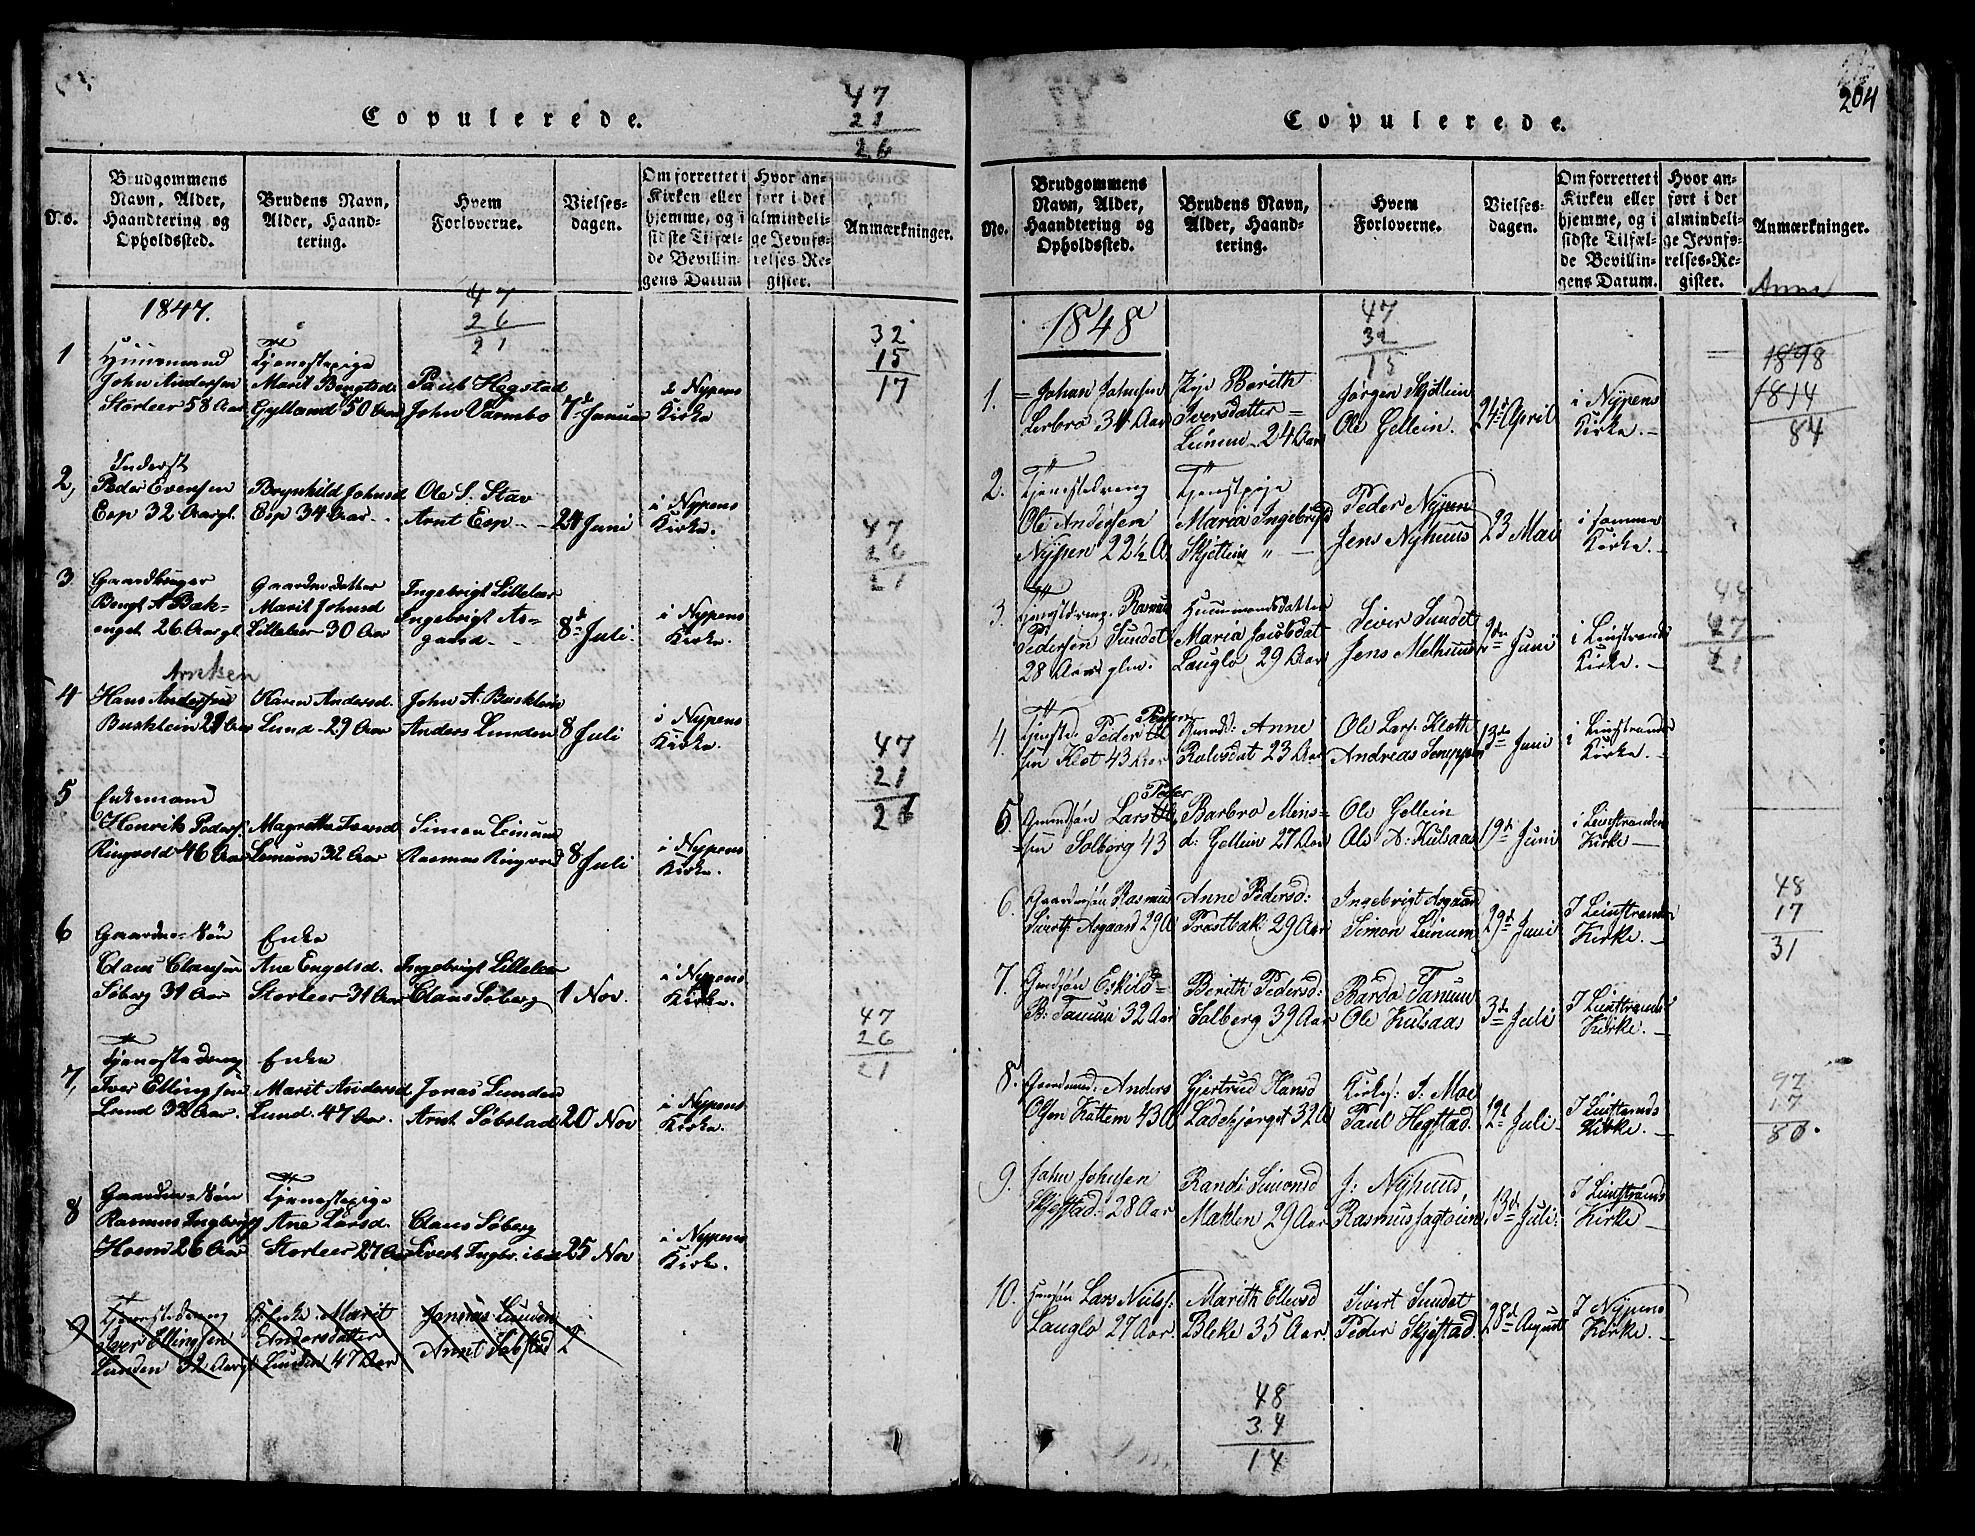 Copulerede.
47
21
26
No.
Brudgommens
Navn, Alder,
Haandtering og
Opholdssted.
Brudens Navn,
Alder, Haand-
tering.
Hvem
Forloverne.
Vielses-
dagen.
Om forrettet i
Kirken eller
hjemme, og i
sidste Tilfæl-
de Bevillin-
gens Datum
Hvor an-
ført i det
almindeli-
ge Jevnfø-
relses-Re-
gister.
Anmærkninger.
1847.
47
26
21
32
15
17
1
Huusmand
John Andersen
Storleer 58 Aar
Tjenestepige
Marit Bengtsd.
Gylland 50 Aar
Paul Hegstad
John Varmbo
7d Januar
i Nypens
Kirke
2,
Inderst
Peder Evensen
Esp 32 Aar gl.
Brynhild Johnsd
Esp 34 Aar
Ole L. Stav
Arnt Esp
24 Juni
i Nypens
Kirke.
47
26
21
3
Gaardbruger
Bengt A Bæk-
enget 26 Aar gl.
Gaardm datter
Marit Johnsd
Lilleleer 30 Aar
Ingebrigt Lilleleer
Ingebrigt As-
gaard
8d Juli
i Nypens
Kirke.
Arntsen
4
Hans Andersen
Busklein 29 Aar
Karen Andersd.
Lund 29 Aar
John A. Busklein
Anders Lunden
8 Juli
i Nypens
Kirke.
47
21
26
5
Enkemand
Henrik Peders.
Ringvold 46 Aar
Magrethe Iversd
Leinum 32 Aar
Simon Leinum
Rasmus Ringvold
8 Juli
i Nypens
Kirke.
6
Gaardm-Søn
Claus Clausen
Søberg 31 Aar
Enke
Ane Engelsd.
Storleer 31 Aar
Ingebrigt Lilleleer
Claus Søberg
1 Nov.
i Nypens
Kirke.
47
26
21
7,
Tjenestedreng
Iver Ellingsen
Lund 32 Aar.
Enke
Marit Andersd
Lund 47 Aar.
Jonas Lunden
Arnt Søbstad
20 Nov
i Nypens
Kirke.
8
Gaardm-Søn
Rasmus Ingebrigts
Hoem 26 Aar
Tjenestepige
Ane Larsd.
Storleer 27 Aar
Claus Søberg
Sivert Ingbr. ibid
25 Nov
i Nypens
Kirke.
9
Tjenestedreng
Iver Ellingsen
Lunden 32 Aar gl
Enke Marit
Andersdatter
Lunden 47 Aar
Jonnas Lunden
Arnt Søbstad
2
Copulerede.
204
No.
Brudgommens
Navn, Alder,
Haandtering og
Opholdssted.
Brudens Navn,
Alder, Haand-
tering.
Hvem
Forloverne.
Vielses-
dagen.
Om forrettet i
Kirken eller
hjemme, og i
sidste Tilfæl-
de Bevillin-
gens Datum.
Hvor an-
ført i det
almindeli-
ge Jevnfø-
relses-Re-
gister.
Anmærkninger.
Anne
1848
47
32
15
1898
1814
84
1.
Johan Johnsen
Lerbro 31 Aar
Pige Berith
Iversdatter
Leinum 24 Aar
Jørgen Skjetlein
Ole Gellein.
24d April
i Nypens
Kirke.
2.
Tjenestedreng
Ole Andersen
Nypen 22½ A
Tjenestpige
Maria Ingebrigtsd
Skjetlein "
Peder Nypen
Jens Nyhuus
23 Mai
i samme
Kirke.
3.
Tjenestdreng. Rasmus
Pedersen Sundet
28 Aar glm.
Huusmandsdatter
Maria Jacobsdat
Lauglo 29 Aar
Siver Sundet
Jens Melhuus
9de Juni
i Leinstrands
Kirke.
44
47
21
4.
Tjenstd. Peder Peder
sen Klet 43 Aar
Anne
Ralisdat 23 Aar
Ole Lars. Kleth
Andreas
13de Juni
i Leinstrands
Kirke.
5.
Lars Peder
sen Solberg 43
Barbro Mens-
d. Gellein 27 Aar
Ole Gellein
Ole A. Kulsaas
19d Juni
i Leinstrands
Kirke
6.
Gaardmsøn Rasmus
Asgaard 29 A
Anne Pedersd:
Prestbak 29 Aar
Ingebrigt Asgaard
Simon Leinum
29d Juni
I Leinstrands
Kirke.
48
17
31
7.
Gmdsøn Eskild
B: Tanum 32 Aar
Berith Pedersd:
Solberg 39 Aar
Bardo Tanum
Ole Kulsaas
3de Juli
I Leinstrands
Kirke.
8.
Anders
Olsen Kattem 43 A
Gjertrud Hansd
Ladehjørget 32 A
Kirkes. I: Moe
Paul Hegstad
12d Juli
I Leinstrands
Kirke.
97
17
80.
9.
John Johnsen
Skjefstad: 28 Aar
Randi Simonsd
Mahlen 29 Aar
J: Nyhuus,
Rasmus Jagtøien
13de Juli
I Leinstrands
Kirke
10.
Lars Niels:
Lauglo 27 Aar.
Marith Ellevsd
Bleke 35 Aar.
Sivert Sundet
Peder Skjefstad
28d August
I Nypens
Kirke.
48
34
14